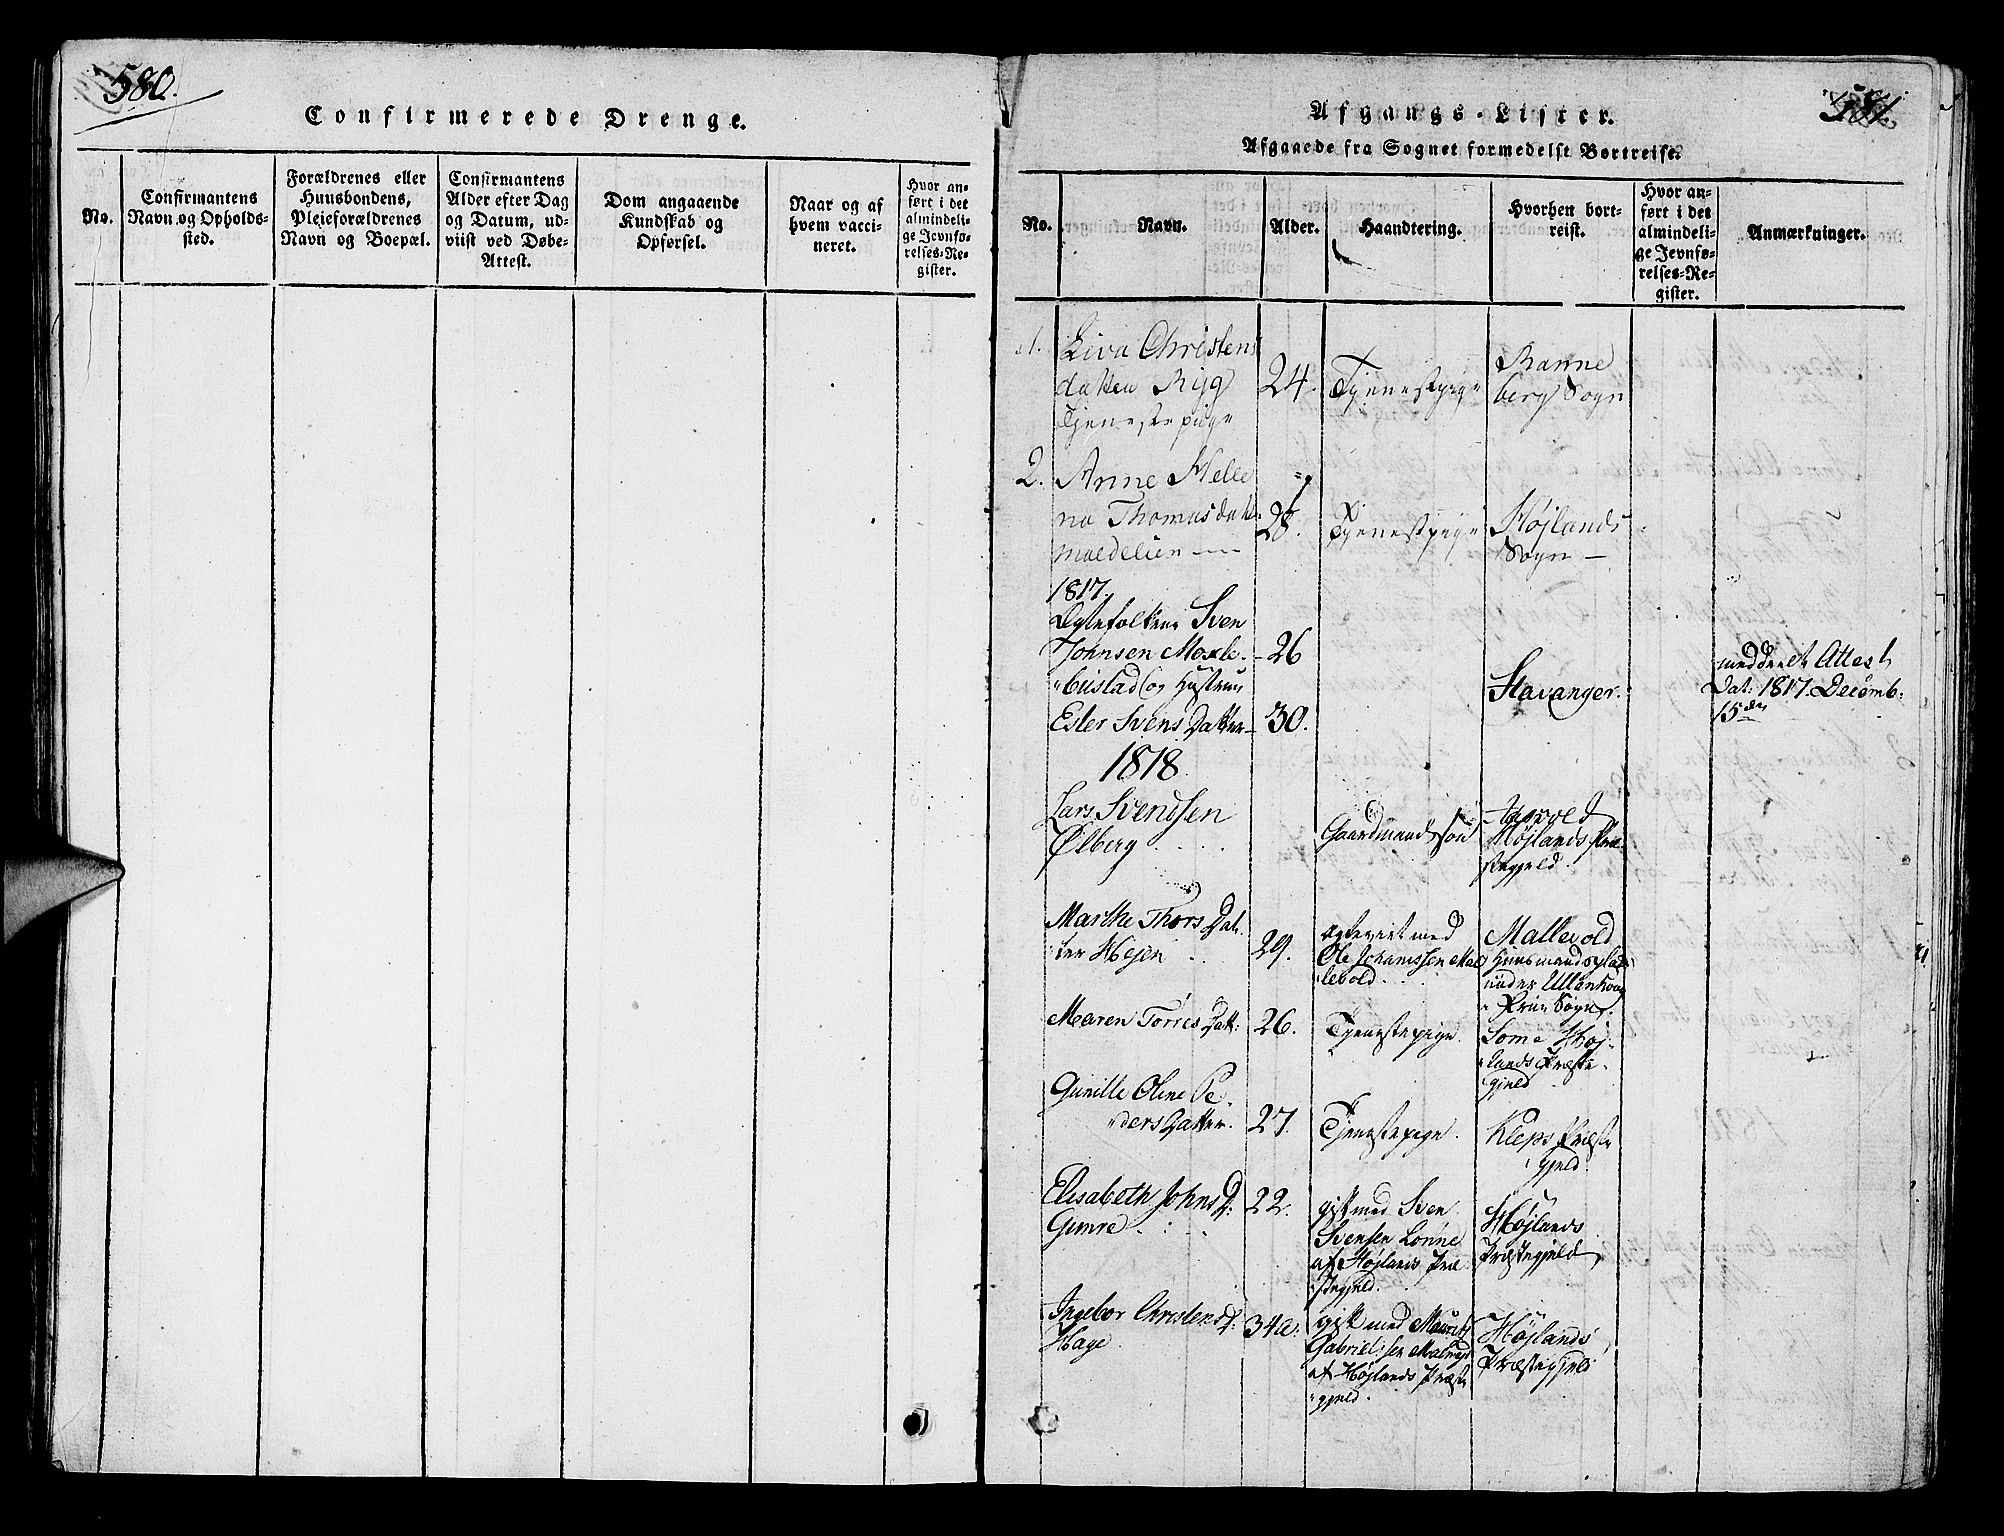 580.
Confirmerede Drenge.
No.
Confirmantens
Navn og Opholds-
sted.
Forældrenes eller
Huusbondens,
Plejeforældrenes
Navn og Boepæl.
Confirmantens
Alder efter Dag
og Datum, ud-
viist ved Døbe-
Attest.
Dom angaaende
Kundskab og
Opførsel.
Naar og af
hvem vacci-
neret.
Hvor an-
ført i det
almindeli-
ge Jevnfø-
relses-Re-
gister.
581.
Afgangs-Lister.
Afgaaede fra Sognet formedelst Bortreise.
No.
Navn.
Alder.
Haandtering.
Hvorhen bort-
reist.
Hvor an-
ført i det
almindeli-
ge Jevnfø-
relses-Re-
gister.
Anmærkninger.
1. Liva Christens
datter Ryg
Tjenestepige
24.
Tjenestpige
Ranne
berg Sogn
2. Anne Helle
na Thomasdat:
28.
Tjenestpige
Højlands
Sogn —
1817.
Ægtefolkene Sven
Johnsen
og Hustrue
26
Ester Svens Datter
30.
Stavanger.
meddeelt Attest
Dat: 1817. Decemb:
15den
1818
Lars Svendsen
Ølberg
Gaardmandssøn
Højlands Præ-
stegjeld.
Marthe Thors Dat-
ter Hejen
29.
Ægteviet med
Ole Johannssen Mal
lebold.
Mallevold
Huusmandsplads
under Ullenhoug
Sogn.
Maren Torres Datt:
26.
Tjenestepige.
Some Høj-
lands Præste-
gjeld
Gunille Oline Pe
ders Datter.
27.
Tjenestepige.
Kleps Præste
gjeld.
Elisabeth Johns D:
Gimre.
22.
gift med Sven
Svensen Lønne
af Højlands Præ
stegjeld.
Højlands
Præstegjeld,
Ingebor Christens D:
Hage.
34 a:
gift med Maurits
Gabrielsen
af Højlands Præste
gjeld.
Højlands
Præstegjeld